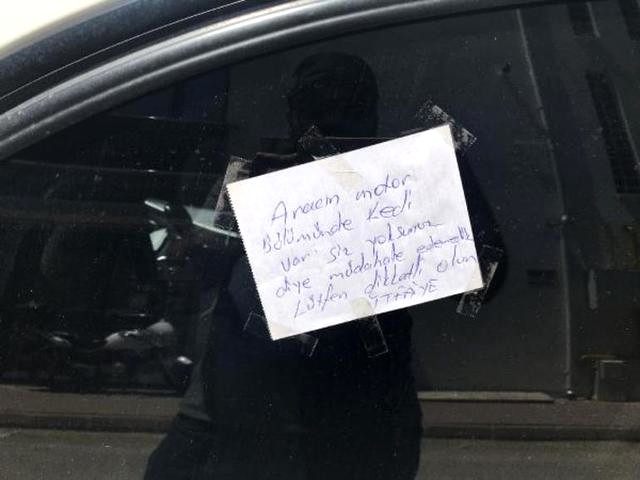 Aracın motor
Bölümünde Kedi
var siz yoksunuz
diye müdahale edemedik
Lütfen dikkatli olun
İTFAİYE